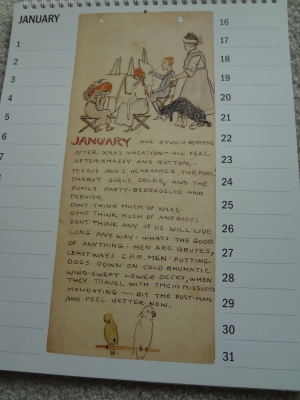 JANUARY
1
2
3
4
5
6
7
16
17
18
19
20
21
22
23
24
25
26
27
28
29
30
31
JANUARY OUR STUDIO REOPENS
AFTER XMAS VACATION - ALL FEEL
AFTER-XMASSY AND ROTTEN,-
MISSUS MODS HEADACHES. THE POOL
PARROT GIRLS COLDS, AND THE
PUPILS PARTY-BEDRAGGLED AND
PEEVISH.
DON'T THINK MUCH OF XMAS.
DON'T THINK MUCH OF ANYBODY.
DON'T THINK ANY OF US WILL LIVE
LONG ANY WAY. WHATS THE GOOD
OF ANYTHING. MEN ARE BRUTES,
LEASTWAYS C.P.R. MEN. PUTTING
DOGS DOWN ON COLD RHUMATIC
WIND-SWEPT LOWER DECKS, WHEN
THEY TRAVEL WITH THEIR MISSUS'S
HOLIDAYING - BIT THE POST-MAN
AND FEEL BETTER NOW.